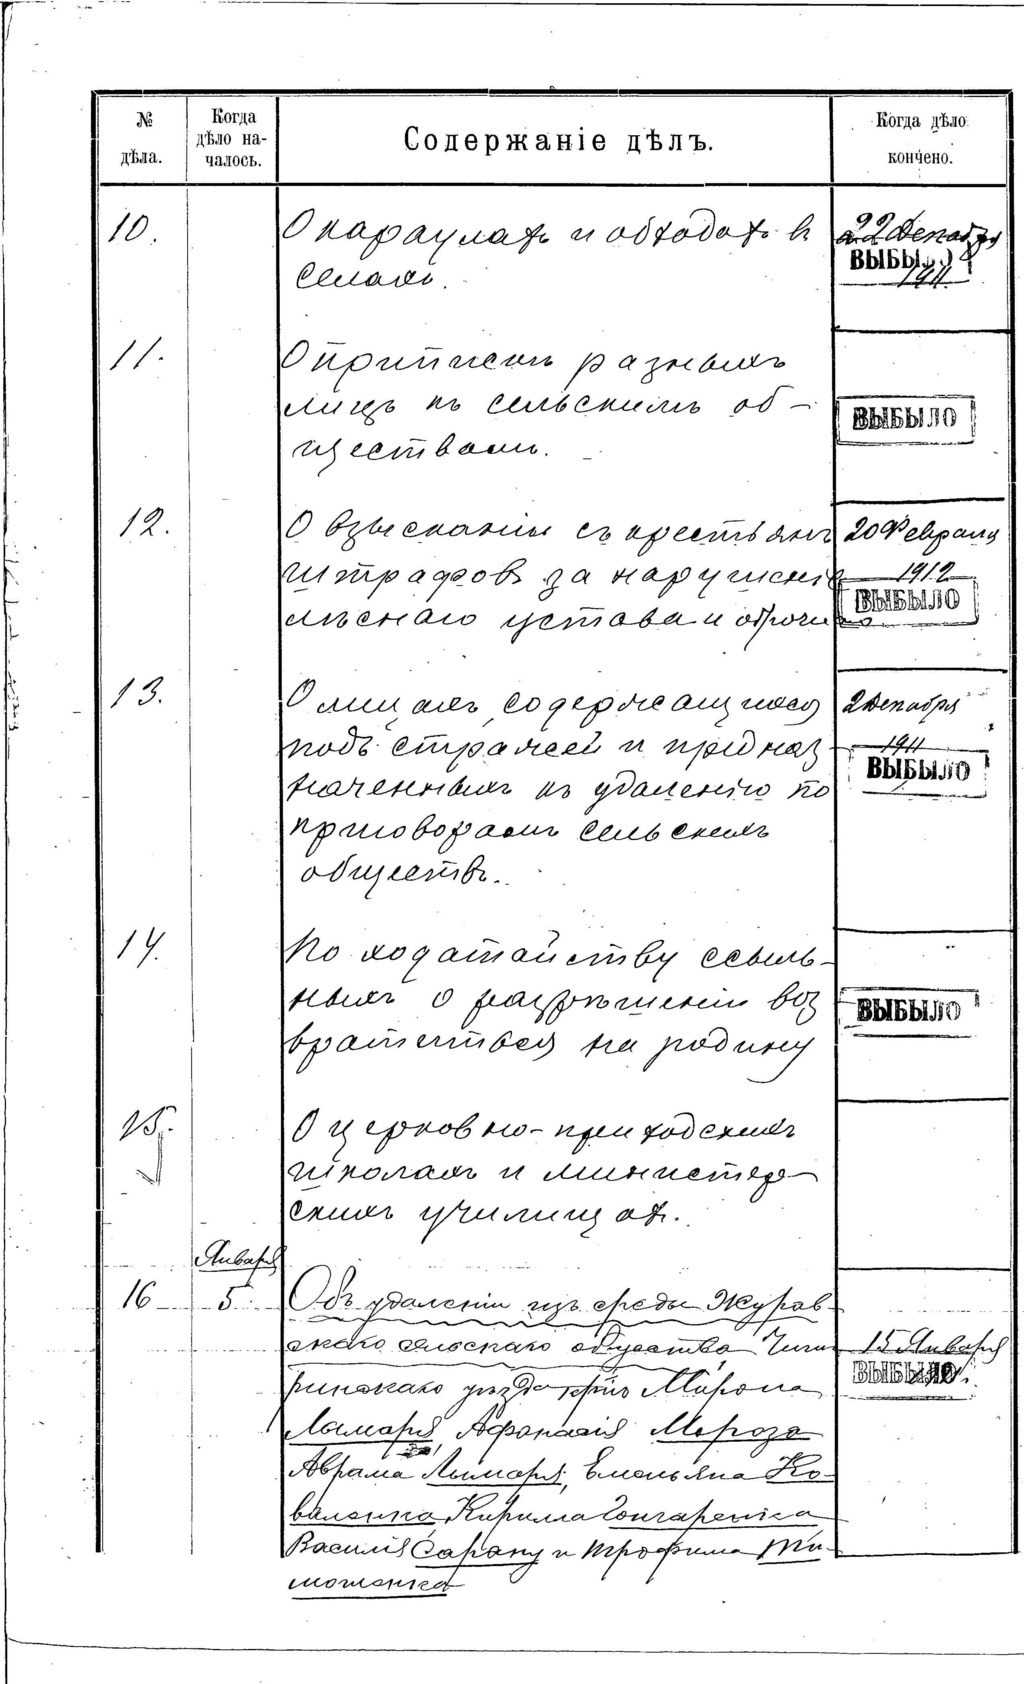 № дѣла.
Когда дѣло на-
чалось.
Содержаніе дѣлъ.
Когда дѣло
кончено.
10. О караулахъ и обходахъ въ
селахъ.
22 Декабря
ВЫБЫЛО
1911
11. О припискѣ разныхъ
лицъ къ сельскимъ об-
ществамъ.
ВЫБЫЛО
12. О взысканіи съ крестьянъ
штрафовъ за нарушеніе
лѣснаго устава и
20 Февраля
1912
ВЫБЫЛО
13. О лицахъ, содержащихся
подъ стражей и предназ
наченныхъ къ удаленію по
приговорамъ сельскихъ
обществъ.
2 Декабря
1911
ВЫБЫЛО
14. По ходатайству ссыль-
ныхъ о разрѣшеніи воз
вратиться на родину
ВЫБЫЛО
15. О церковно-приходскихъ
школахъ и министер-
скихъ училищахъ.
Января
16 5 Объ удаленіи изъ среды Журов-
скаго сельскаго общества Чиги
ринскаго уѣзда кр. Мирона
Лымаря, Афанасія Мороза
Аврама Лымаря, Емельяна Ко-
валенка, Кирилла Гончаренка
Василія Сарану и Трофима Ти-
мошенка
15 Января
ВЫБЫЛО